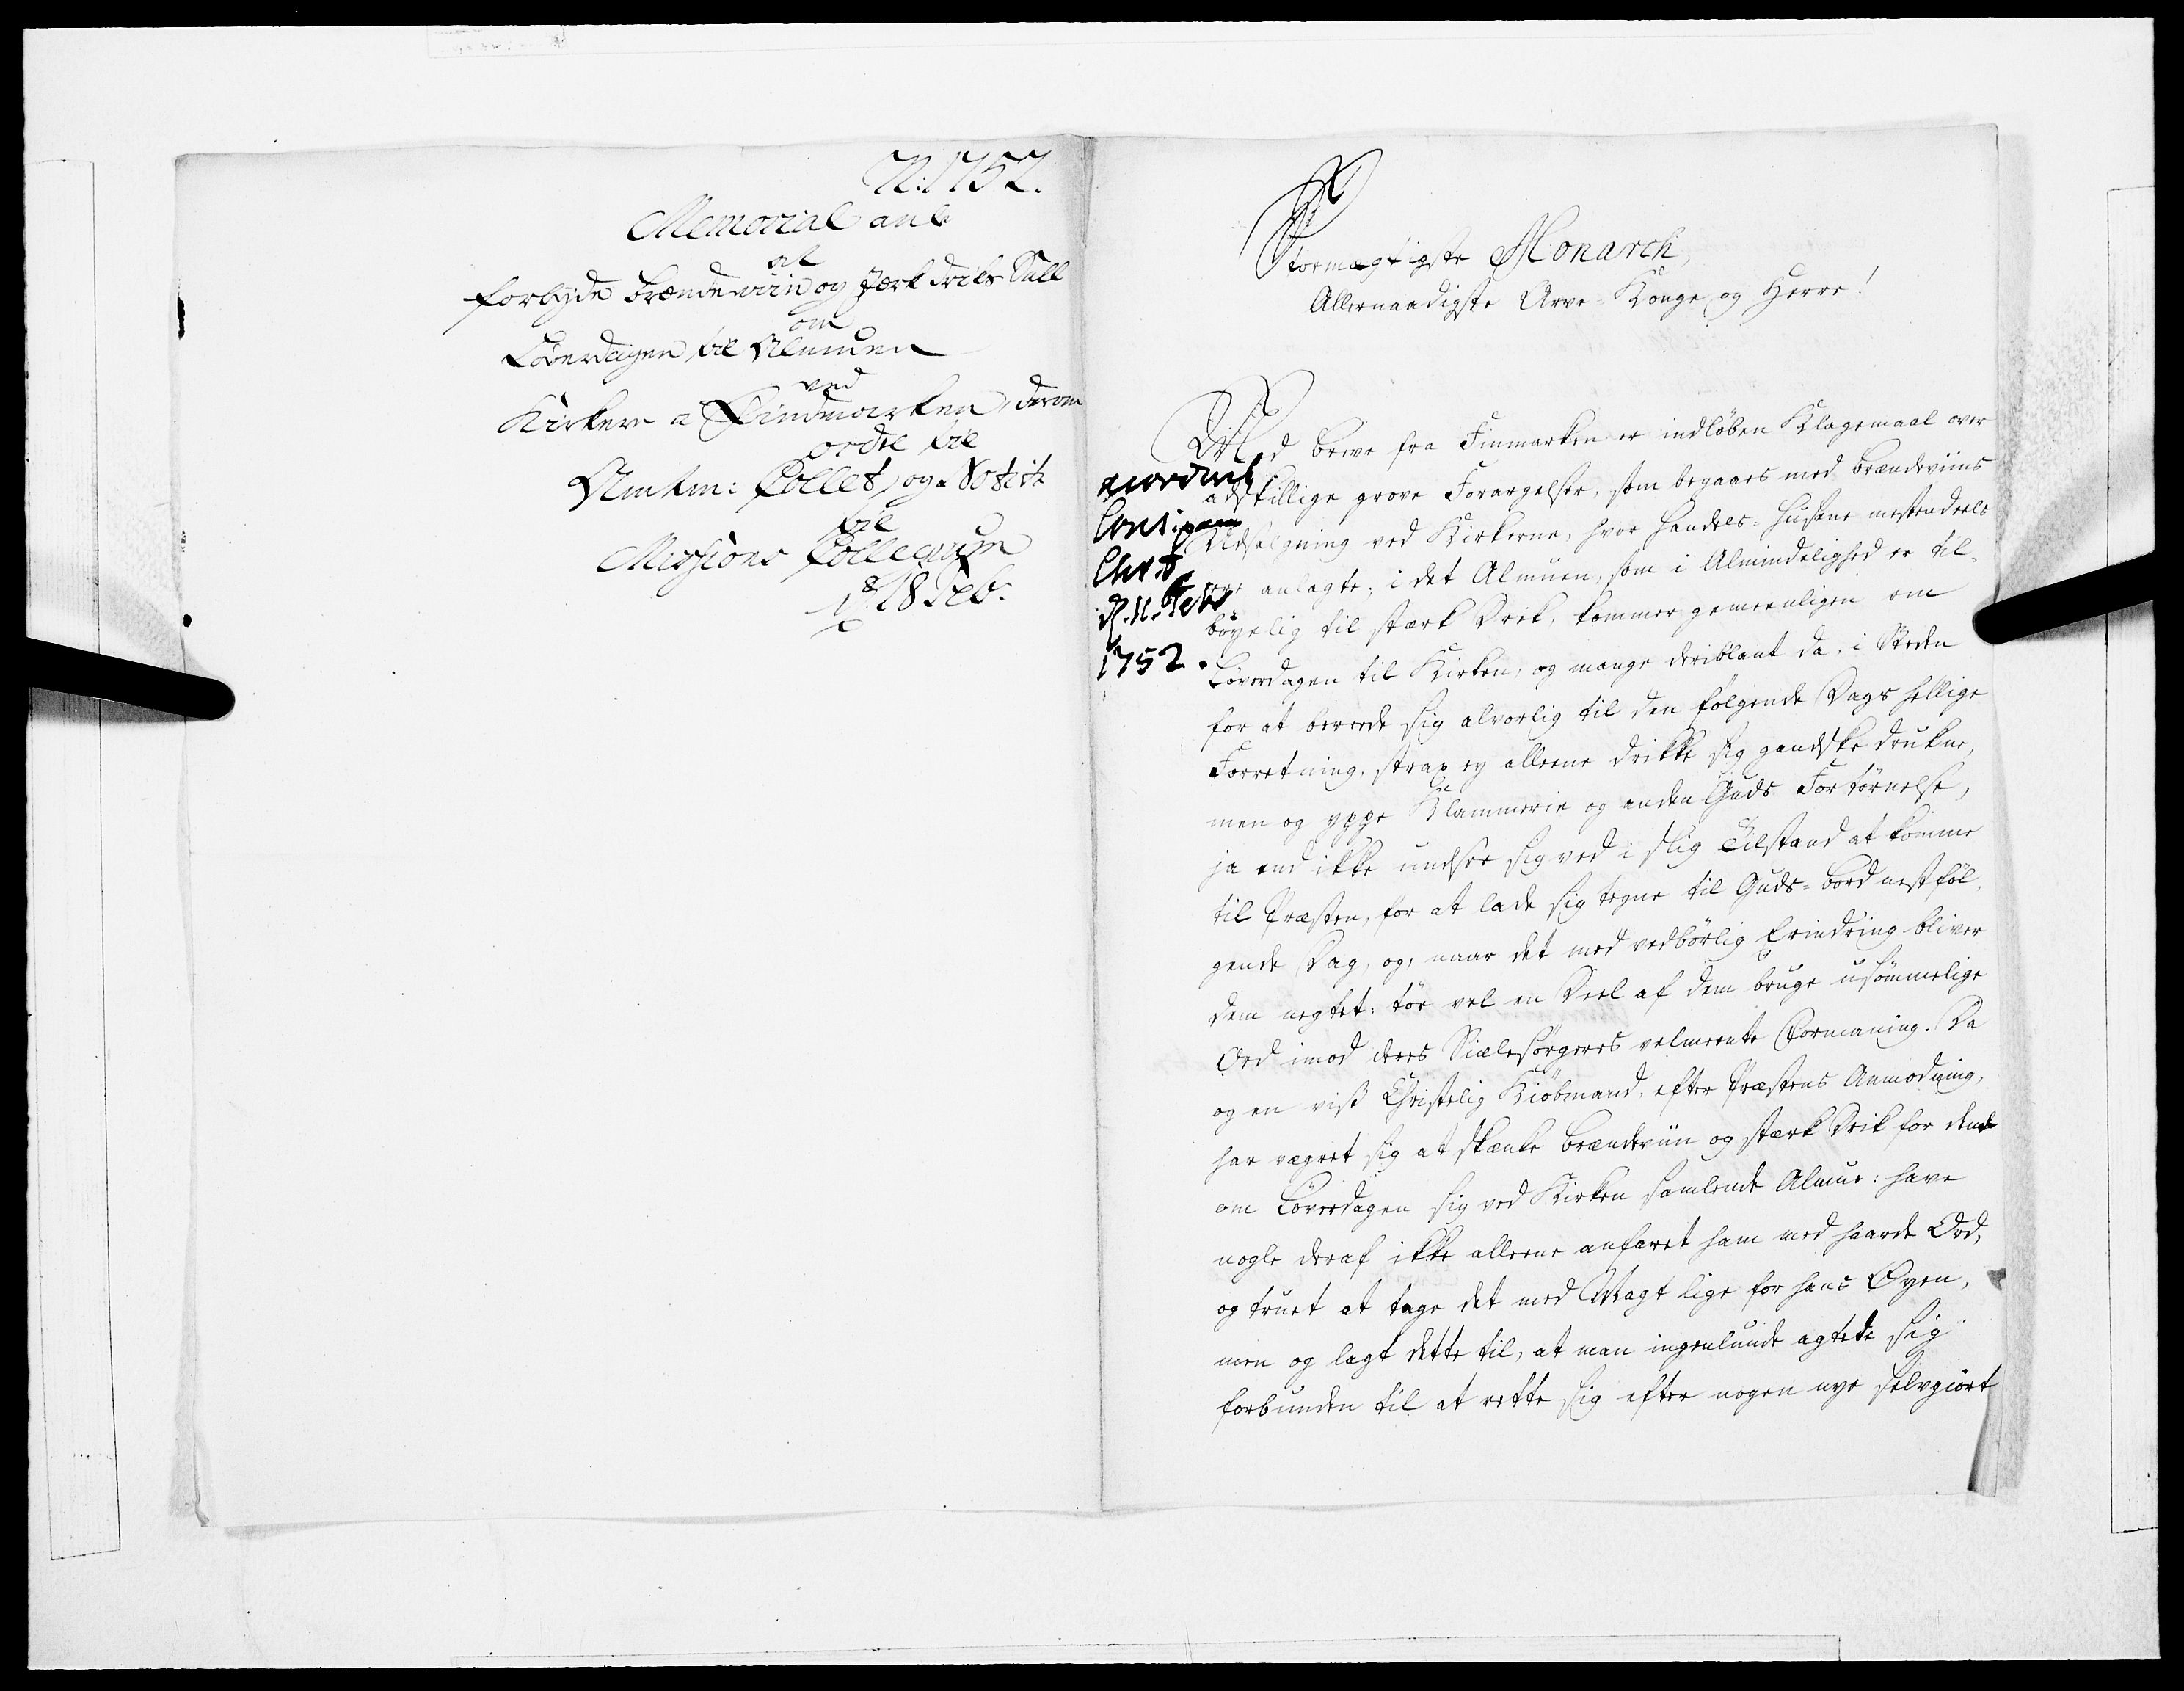 N: 1752.
Memorial anl:
at
forbyde Brændeviin og stærk driks Sall
om
Løverdagen til Almuen
ved
Kirkerne a Findmarken, derom
ordre til
Amtm: Collet, og Notitz
til
Missions Collegium
d: 18 Feb:
Stormægtigste Monarch,
Allernaadigste Arve-Konge og Herre!
Med breve fra Finmarken er indløben Klagemaal over
adskillige grove Forargelser, som begaaes med Brændeviins
Udselgning ved Kirkerne, hvor Handels-Husene mestendeels
ere anlagte; i det Almuen, som i Almindelighed er til-
bøyelig til stærk Drik, kommer gemeenligen om
Løverdagen til Kirken, og mange deriblant da, i Steden
for at bereede sig alvorlig til den følgende Dags hellige
Forretning, strax ey alleene drikke sig gandske drukne,
men og yppe Klammerie og anden Guds Fortørnelse,
ja end ikke undsee sig ved i slig Tilstand at komme
til Præsten, for at lade sig tegne til Guds-bord nestføl-
gende Dag, og, naar det med vedbørlig Erindring bliver
dem negtet: tør vel en Deel af dem bruge usømmelige
Ord imod deres Siælesørgeres velmeente Formaning. Da
og en viss Christelig Kiøbmand, efter Præstens Anmodning,
har vegret sig at skænke Brændeviin og stærk Drik for dend
om Løverdagen sig ved Kirken samlende Almue: have
nogle deraf ikke alleene anfaret ham med haarde Ord,
og truet at tage det med Magt lige for hans Øyen,
men og lagt dette til, at man ingenlunde agtede sig
forbunden til at rette sig efter nogen nye selvgiort
Christ
d. 11. Febr
1752.